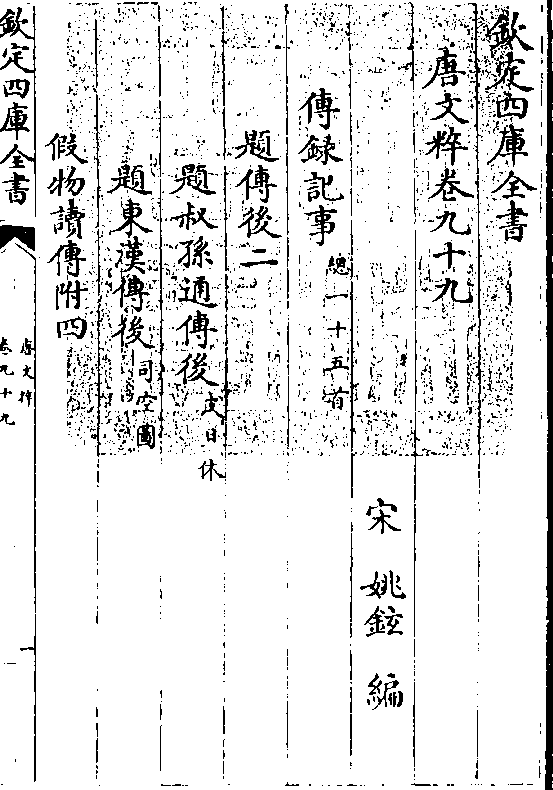 欽定四庫全書
唐文粹卷九十九
宋 姚鉉 編
傳録記事 總一十五首
題傳後二
題叔孫通傳後 皮日休
題東漢傳後 司空圖
假物讀傳附四
欽定四庫全書
唐文粹
卷九十九
一